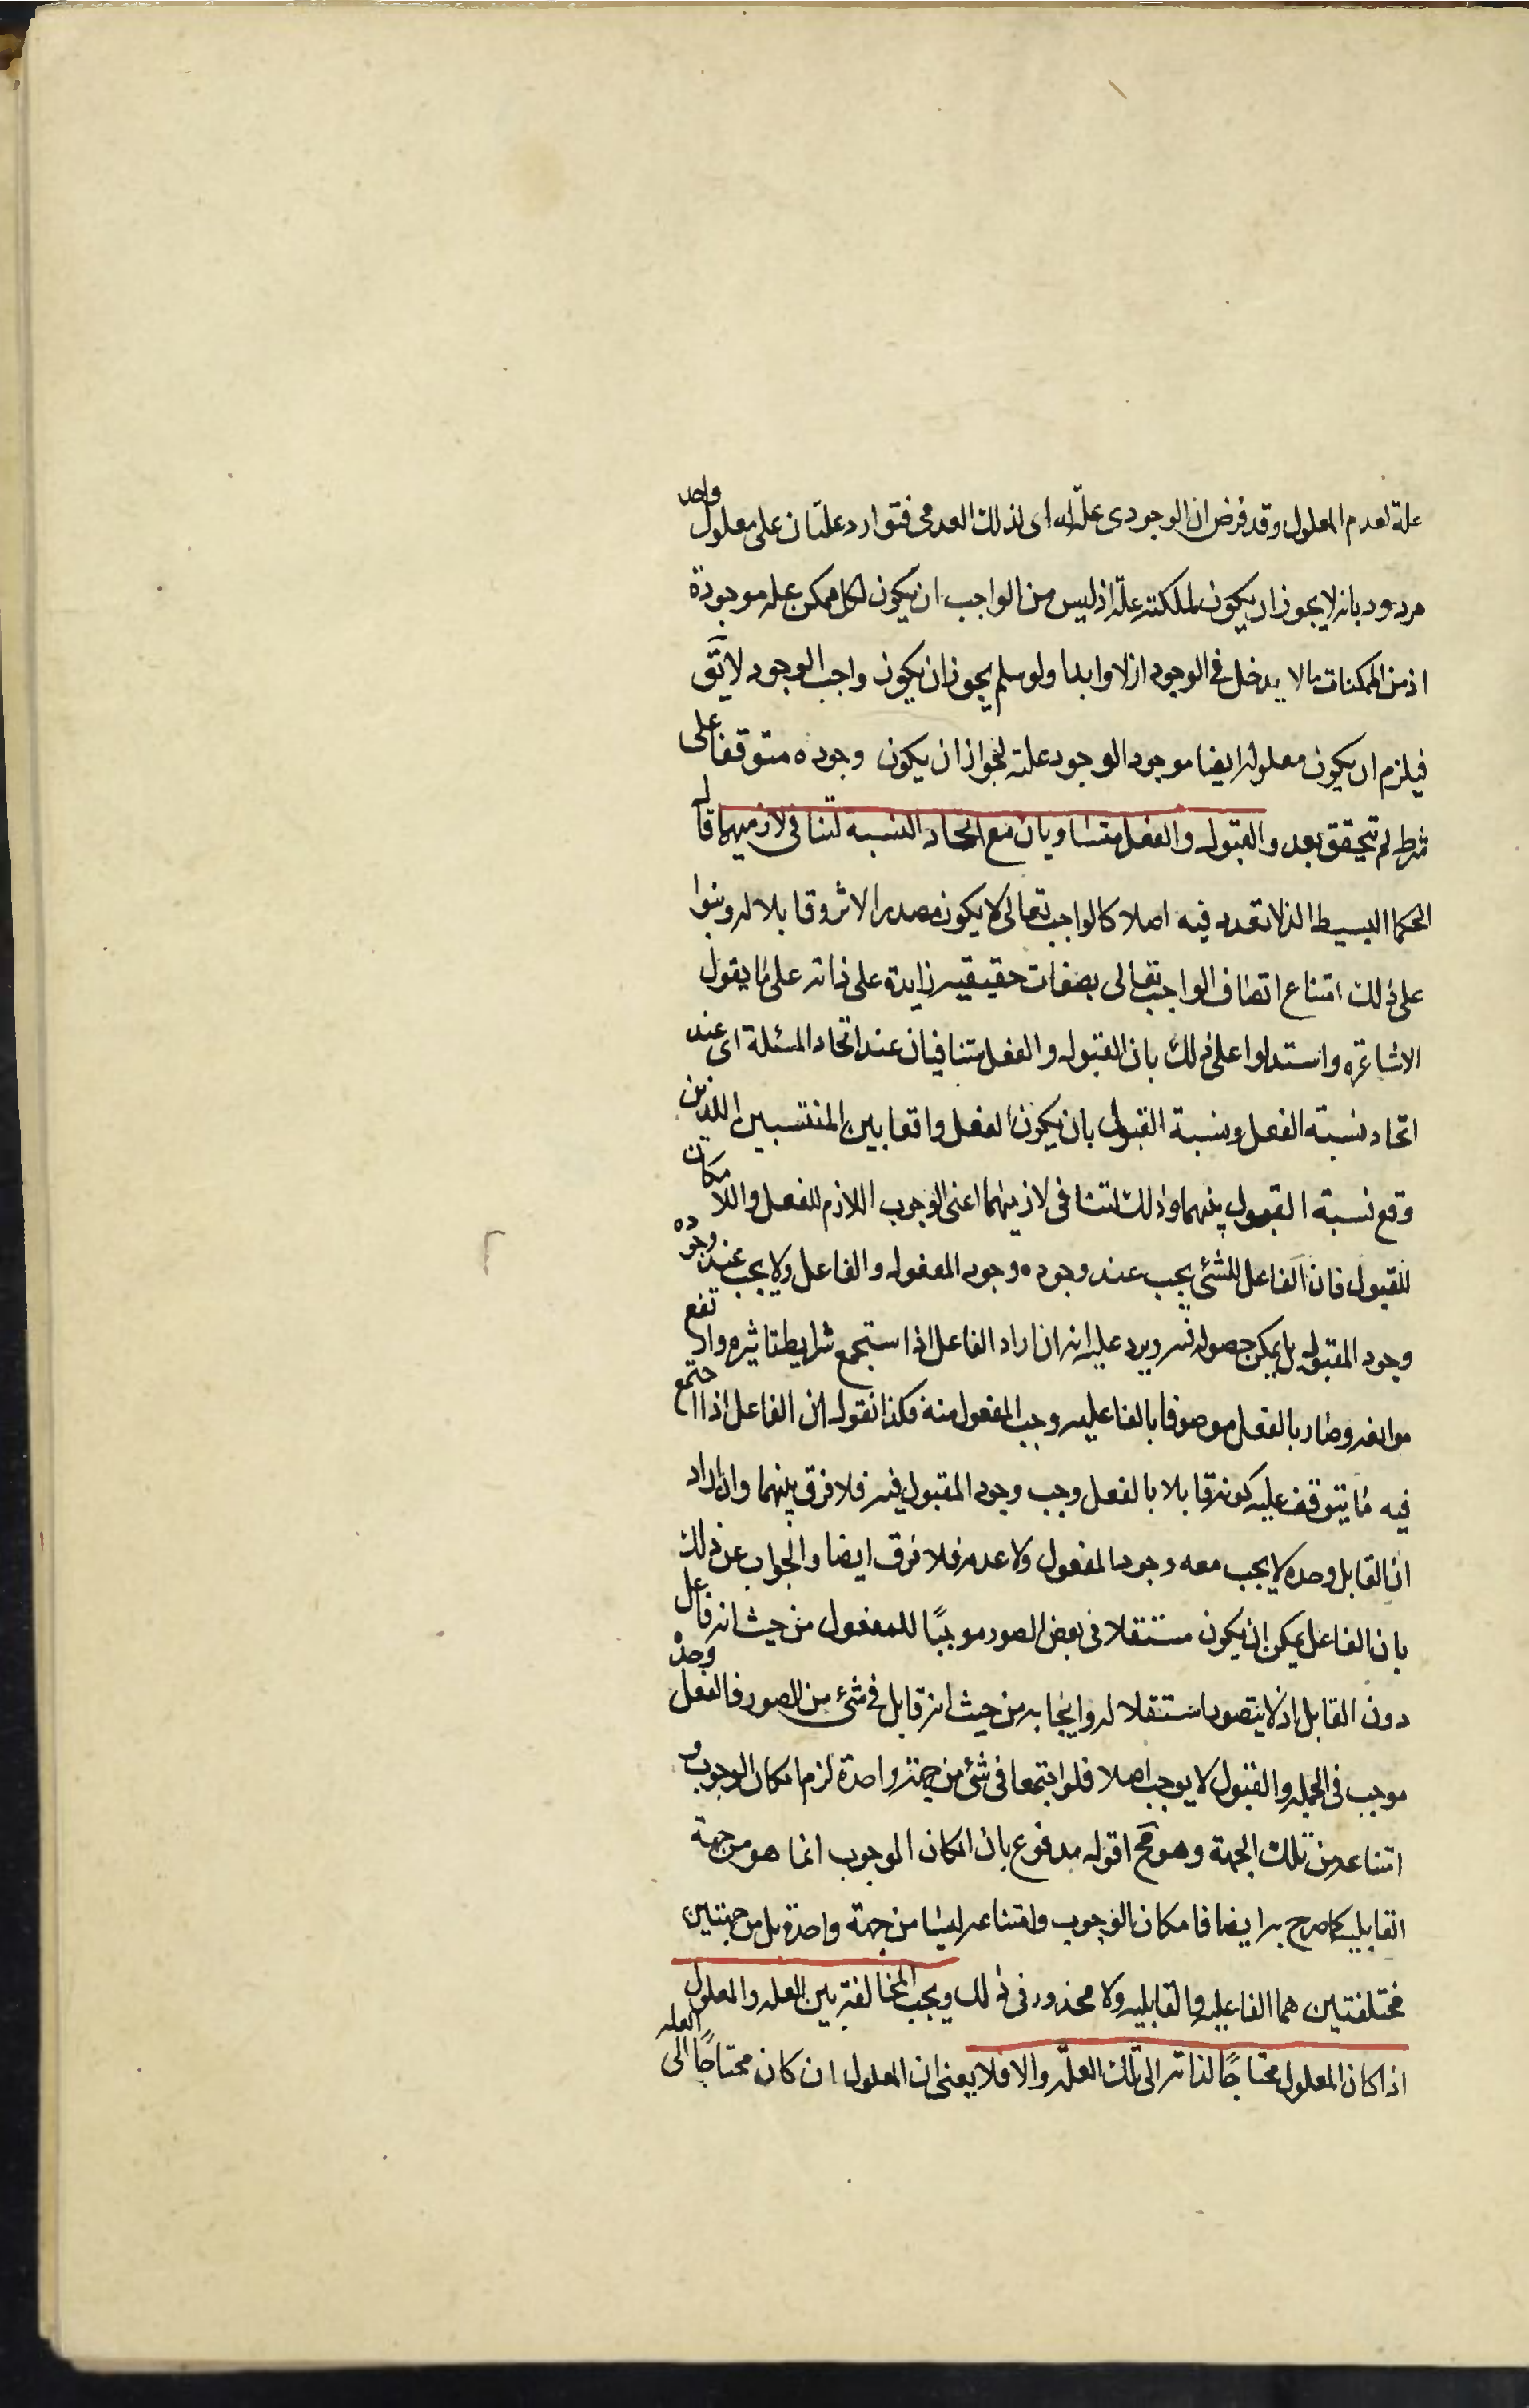 علة لعدم المعلول وقد فرض ان الوجودى علّة له اى لذلك العدمى فتوارد علتان على معلول واحد
مردود بانه لا يجوز ان يكون لملكته علّة اذ ليس من الواجب ان يكون لكل ممكن علة موجودة
اذ من الممكنات ما لا يدخل فى الوجود ازلا وابدا ولو سلم يجوز ان يكون واجب الوجود لا يق
فيلزم ان يكون معلوله ايضا موجود الوجود علته لجواز ان يكون وجوده متوقفا على
شرط لم يتحقق بعد والقبول والفعل متساويان مع اتحاد النسبة لتنافى لازميهما قال
الحكما البسيط الذ لا تعدد فيه اصلا كالواجب تعالى لا يكون مصدرا لاثر وقابلا له وبنوا
على ذلك امتناع اتصاف الواجب تعالى بصفات حقيقيه زايدة على ذاته على ما يقول
الاشاعره واستدلوا على ذلك بان القبول والفعل متنافيان عند اتحاد المسئلة اى عند
اتحاد نسبة الفعل ونسبة القبول بان يكون الفعل واقعا بين المنتسبين اللذين
وقع نسبة القبول بينهما وذلك لتنافى لازميهما اعنى الوجوب اللازم للفعل واللامكان
للقبول فان الفاعل للشئ يجب عند وجوده وجود المفعول والفاعل ولا يجب عند وجوده
وجود المقبول بل يمكن حصوله فيه ويرد عليه انه ان اراد الفاعل اذا استجمع شرايط تاثيره وارتفع
موانعه وصار بالفعل موصوفا بالفاعليه وجب المفعول منه فكذا نقول ان الفاعل اذا اجتمع
فيه ما يتوقف عليه كونه قابلا بالفعل وجب وجود المقبول فيه فلا فرق بينهما وان اراد
ان القابل وحده لا يجب معه وجود المفعول ولا عدمه فلا فرق ايضا والجواب عن ذلك
بان الفاعل يمكن ان يكون مستقلا فى بعض الصور موجبًا للمفعول من حيث انه فاعل
دون القابل اذ لا يتصور استقلاله وايجابه من حيث انه قابل فى شئ من الصور فالفعل وحده
موجب فى الجملة والقبول لا يوجب اصلا فلو اجتمعا فى شئ من جهة واحدة لزم امكان الوجوب و
امتناعه من تلك الجهة وهو مح اقول مدفوع بان امكان الوجوب انما هو من جهة
القابليه كما صرح به ايضا فامكان الوجوب وامتناعه ليسا من جهة واحدة بل من جهتين
مختلفتين هما الفاعليه والقابليه ولا محذور فى ذلك ويجب المخالفة بين العله والمعلول
اذا كان المعلول محتاجًا لذاته الى تلك العلّه والا فلا يعنى ان المعلول ان كان محتاجًا الى العله